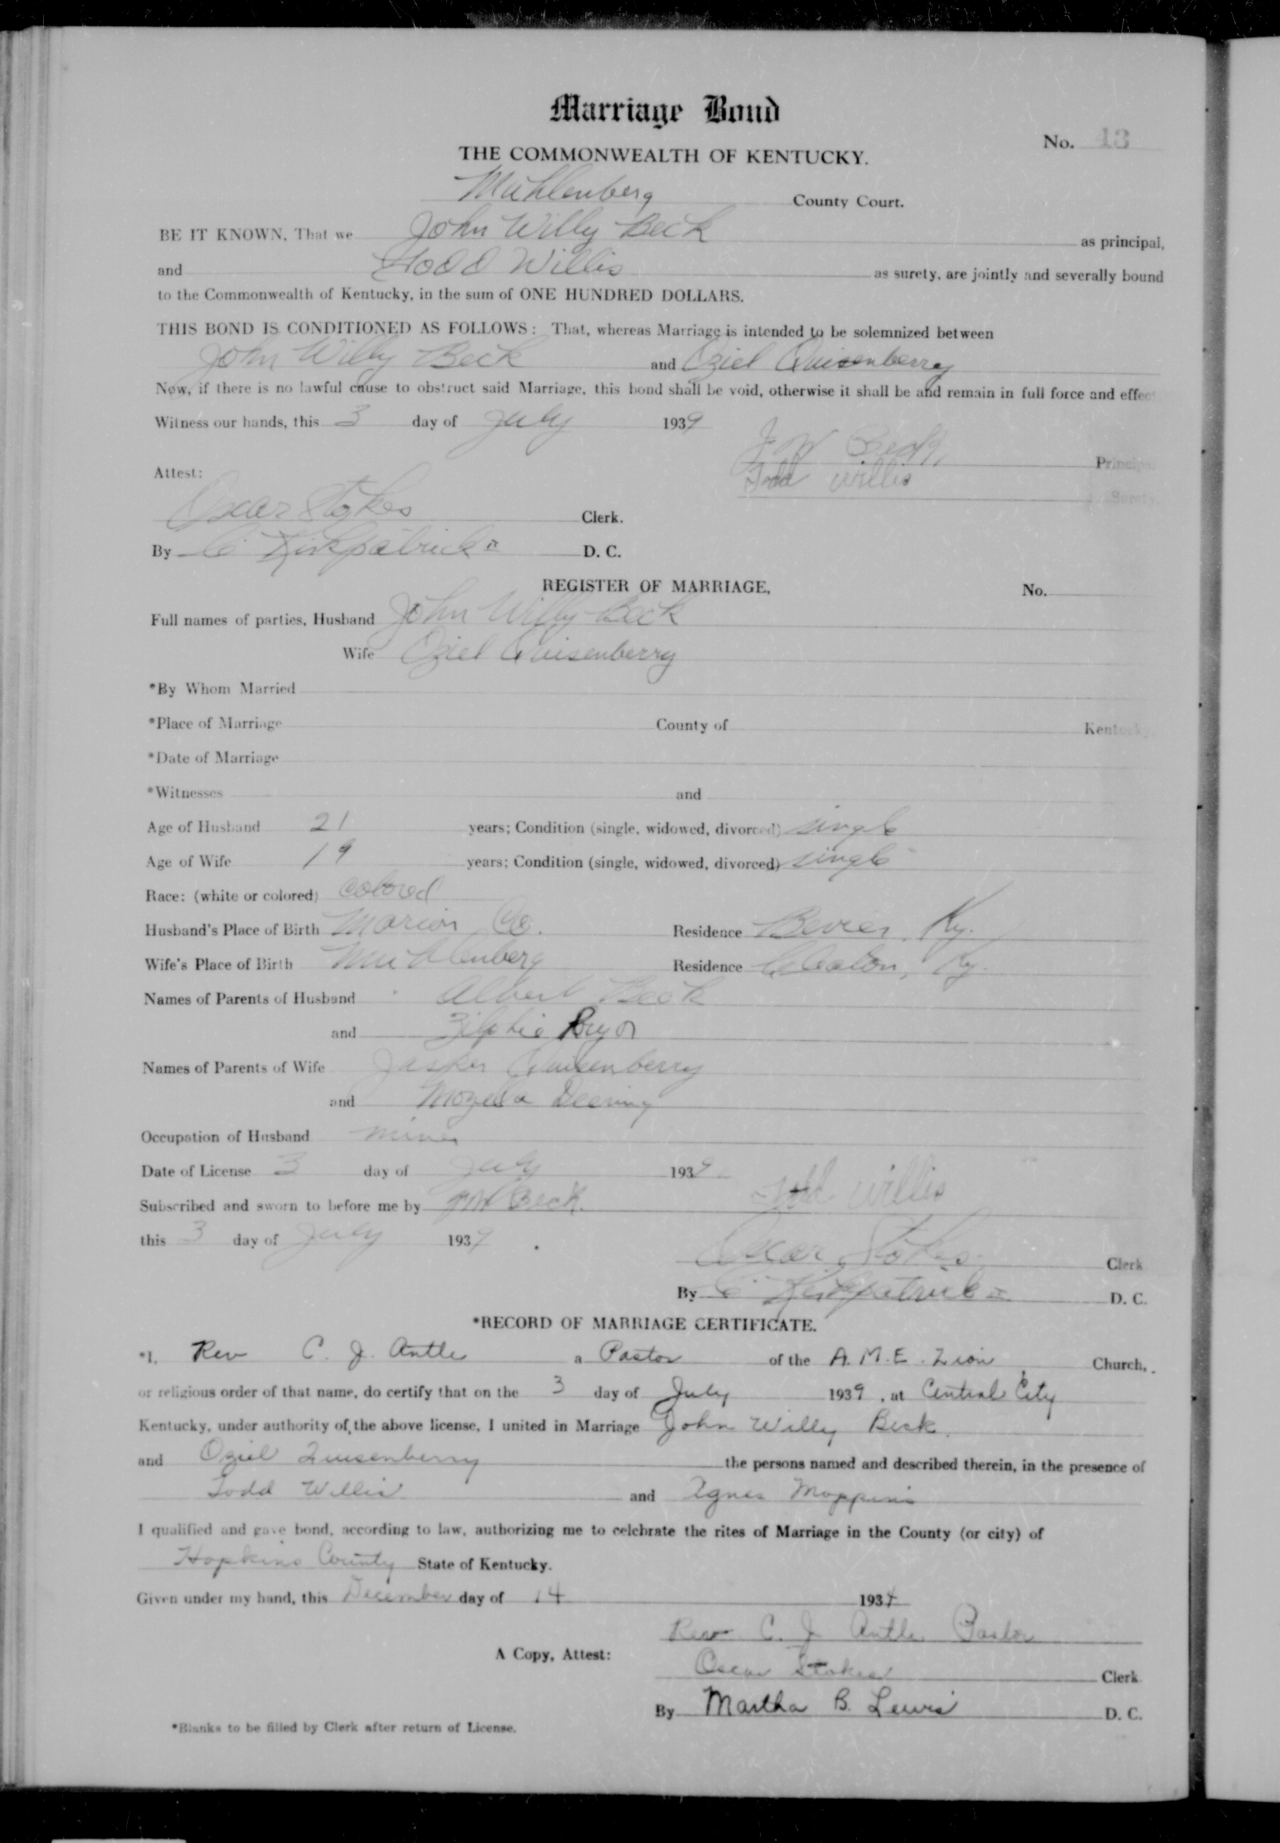 Marriage Bond
No. 43
THE COMMONWEALTH OF KENTUCKY.
Muhlenberg County Court.
BE IT KNOWN, That we John Willy Beck as principal,
and Todd Willis as surety, are jointly and severally bound
to the Commonwealth of Kentucky, in the sum of ONE HUNDRED DOLLARS.
THIS BOND IS CONDITIONED AS FOLLOWS: That, whereas Marriage is intended to be solemnized between
John Willy Beck and Oziel Quisenberry
Now, if there is no lawful cause to obstruct said Marriage, this bond shall be void, otherwise it shall be and remain in full force and effect
Witness our hands, this 3 day of July 1939
J W Beck, Principal
Attest: Todd Willis Surety
Oscar Stokes Clerk.
By C. Kirkpatrick D. C.
REGISTER OF MARRIAGE, No.
Full names of parties, Husband John Willy Beck
Wife Oziel Quisenberry
*By Whom Married
*Place of Marriage County of Kentucky
*Date of Marriage
*Witnesses and
Age of Husband 21 years; Condition (single, widowed, divorced) single
Age of Wife 19 years; Condition (single, widowed, divorced) single
Race: (white or colored) colored
Husband's Place of Birth Marion Co. Residence Bevier, Ky.
Wife's Place of Birth Muhlenberg Residence Cleaton, Ky.
Names of Parents of Husband Albert Beck
and Zilphia
Names of Parents of Wife Jasper Quisenberry
and Mozella Deering
Occupation of Husband miner
Date of License 3 day of July 1939 Todd Willis
Subscribed and sworn to before me by J W Beck.
this 3 day of July 1939
Oscar Stokes Clerk
By C. Kirkpatrick D. C.
*RECORD OF MARRIAGE CERTIFICATE.
*I, Rev C. J. Antle a Pastor of the A. M. E. Zion Church,
or religious order of that name, do certify that on the 3 day of July 1939, at Central City
Kentucky, under authority of the above license, I united in Marriage John Willy Beck
and Oziel Quisenberry the persons named and described therein, in the presence of
Todd Willis and Agnes Moppins
I qualified and gave bond, according to law, authorizing me to celebrate the rites of Marriage in the County (or city) of
Hopkins County State of Kentucky.
Given under my hand, this December day of 14 1934
Rev C. J Antle Pastor
A Copy, Attest: Oscar Stokes Clerk
By Martha B. Lewis D. C.
*Blanks to be filled by Clerk after return of License.